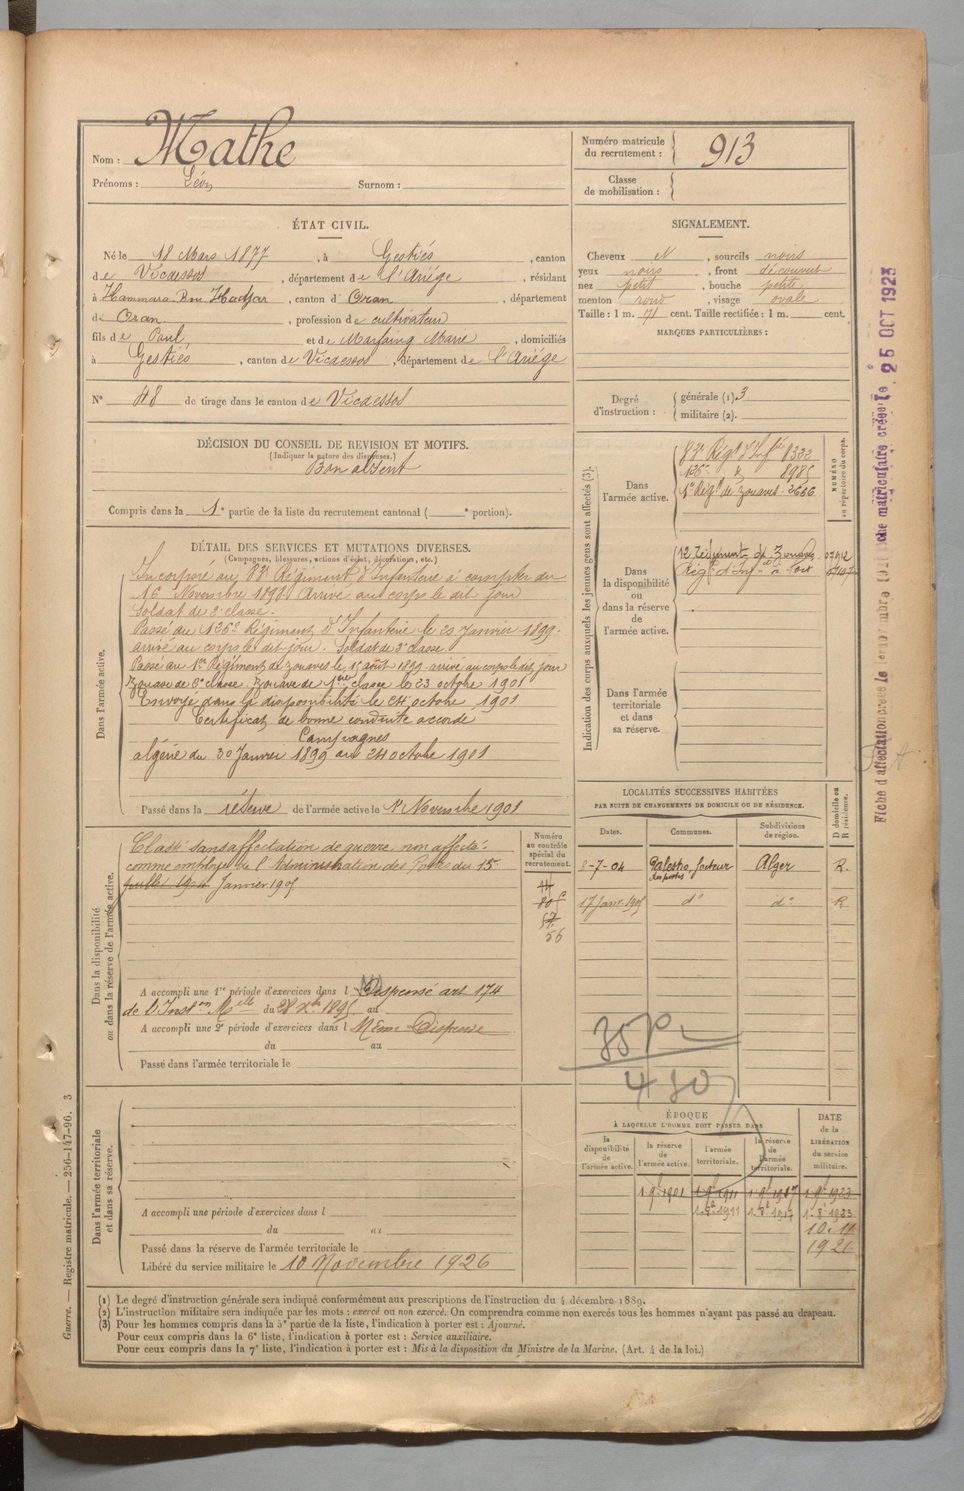 Nom : Mathe
Prénoms : Léon Surnom :
Numéro matricule du recrutement : 913
Classe de mobilisation :
ÉTAT CIVIL.
Né le 18 Mars 1877, à Gestiés, canton
de Vicdessos, département de l'Ariége, résidant
à Hammam Bou Hadjar, canton d'Oran, département
d Oran, profession de cultivateur
fils de Paul et de Marfaing Marie, domiciliés
à Gestiés, canton de Vicdessos, département de l'Ariége
N° 48 de tirage dans le canton de Vicdessos
SIGNALEMENT.
Cheveux N, sourcils noirs
yeux noirs, front découvert
nez petit, bouche petite
menton rond, visage ovale
Taille : 1 m. 71 cent. Taille rectifiée : 1 m. cent.
MARQUES PARTICULIÈRES :
Degré d'instruction : générale (1). 3
militaire (2).
DÉCISION DU CONSEIL DE REVISION ET MOTIFS.
(Indiquer la nature des dispenses.)
Bon absent
Compris dans la 1e partie de la liste du recrutement cantonal ( e portion).
DÉTAIL DES SERVICES ET MUTATIONS DIVERSES.
(Campagnes, blessures, actions d'éclat, décorations, etc.)
Dans l'armée active.
Incorporé au Régiment d'Infanterie à compter du
16 Novembre 1898. Arrivé au corps le dit jour
Soldat de 2e classe.
Passé au 126e Régiment d'Infanterie le 20 Janvier 1899.
arrivé au corps le dit jour. Soldat de 2e classe.
Passé au 1er Régiment de Zouaves le août 1899 arrivé au corps le dit jour
Zouave de 2e classe. Zouave de 1ère classe le 23 octobre 1901
Envoyé dans la disponibilité le 24 octobre 1901
Certificat de bonne conduite accordé
Campagnes
algérie du 30 Janvier 1899 au 24 octobre 1901
Passé dans la réserve de l'armée active le 1er Novembre 1901
Indication des corps auxquels les jeunes gens sont affectés (3).
NUMÉRO au répertoire du corps.
Dans l'armée active.
Régt d'Infrie 8322
126e d° 8985
1er Régt de Zouaves 3666
Dans la disponibilité ou dans la réserve de l'armée active.
régiment de Zouaves
Dans l'armée territoriale et dans sa réserve.
LOCALITÉS SUCCESSIVES HABITÉES
PAR SUITE DE CHANGEMENTS DE DOMICILE OU DE RÉSIDENCE.
Dates. Communes. Subdivisions de région. D domicile ou R résidence.
8-7-04 Palestro, facteur des postes Alger R.
17 Janv. 1905 d° d° R
Dans la disponibilité ou dans la réserve de l'armée active.
Numéro au contrôle spécial du recrutement.
Classé sans affectation de guerre, non affecté.
comme employé de l'Administration des Postes du 15
juillet 1904 Janvier 1905
56
A accompli une 1re période d'exercices dans l Dispensé art 174
de l'Inston Melle du 28 Xbre 1895 au
A accompli une 2e période d'exercices dans l Même Dispense
du au
Passé dans l'armée territoriale le
Dans l'armée territoriale et dans sa réserve.
A accompli une période d'exercices dans l
du au
Passé dans la réserve de l'armée territoriale le
Libéré du service militaire le 10 Novembre 1926
ÉPOQUE
À LAQUELLE L'HOMME DOIT PASSER DANS
la disponibilité de l'armée active. la réserve de l'armée active. l'armée territoriale. la réserve de l'armée territoriale.
DATE de la LIBÉRATION du service militaire.
1 9bre 1901 1 9bre 1911 1 9bre 1917 1 9bre 1923
1 8bre 1911 1 8bre 1917 1 8bre 1923
10.11
1926
(1) Le degré d'instruction générale sera indiqué conformément aux prescriptions de l'instruction du 4 décembre 1889.
(2) L'instruction militaire sera indiquée par les mots : exercé ou non exercé. On comprendra comme non exercés tous les hommes n'ayant pas passé au drapeau.
(3) Pour les hommes compris dans la 5e partie de la liste, l'indication à porter est : Ajourné.
Pour ceux compris dans la 6e liste, l'indication à porter est : Service auxiliaire.
Pour ceux compris dans la 7e liste, l'indication à porter est : Mis à la disposition du Ministre de la Marine. (Art. 4 de la loi.)
Guerre. — Registre matricule. — 256-147-96. 3
Fiche matriculaire créée le 25 OCT 1923